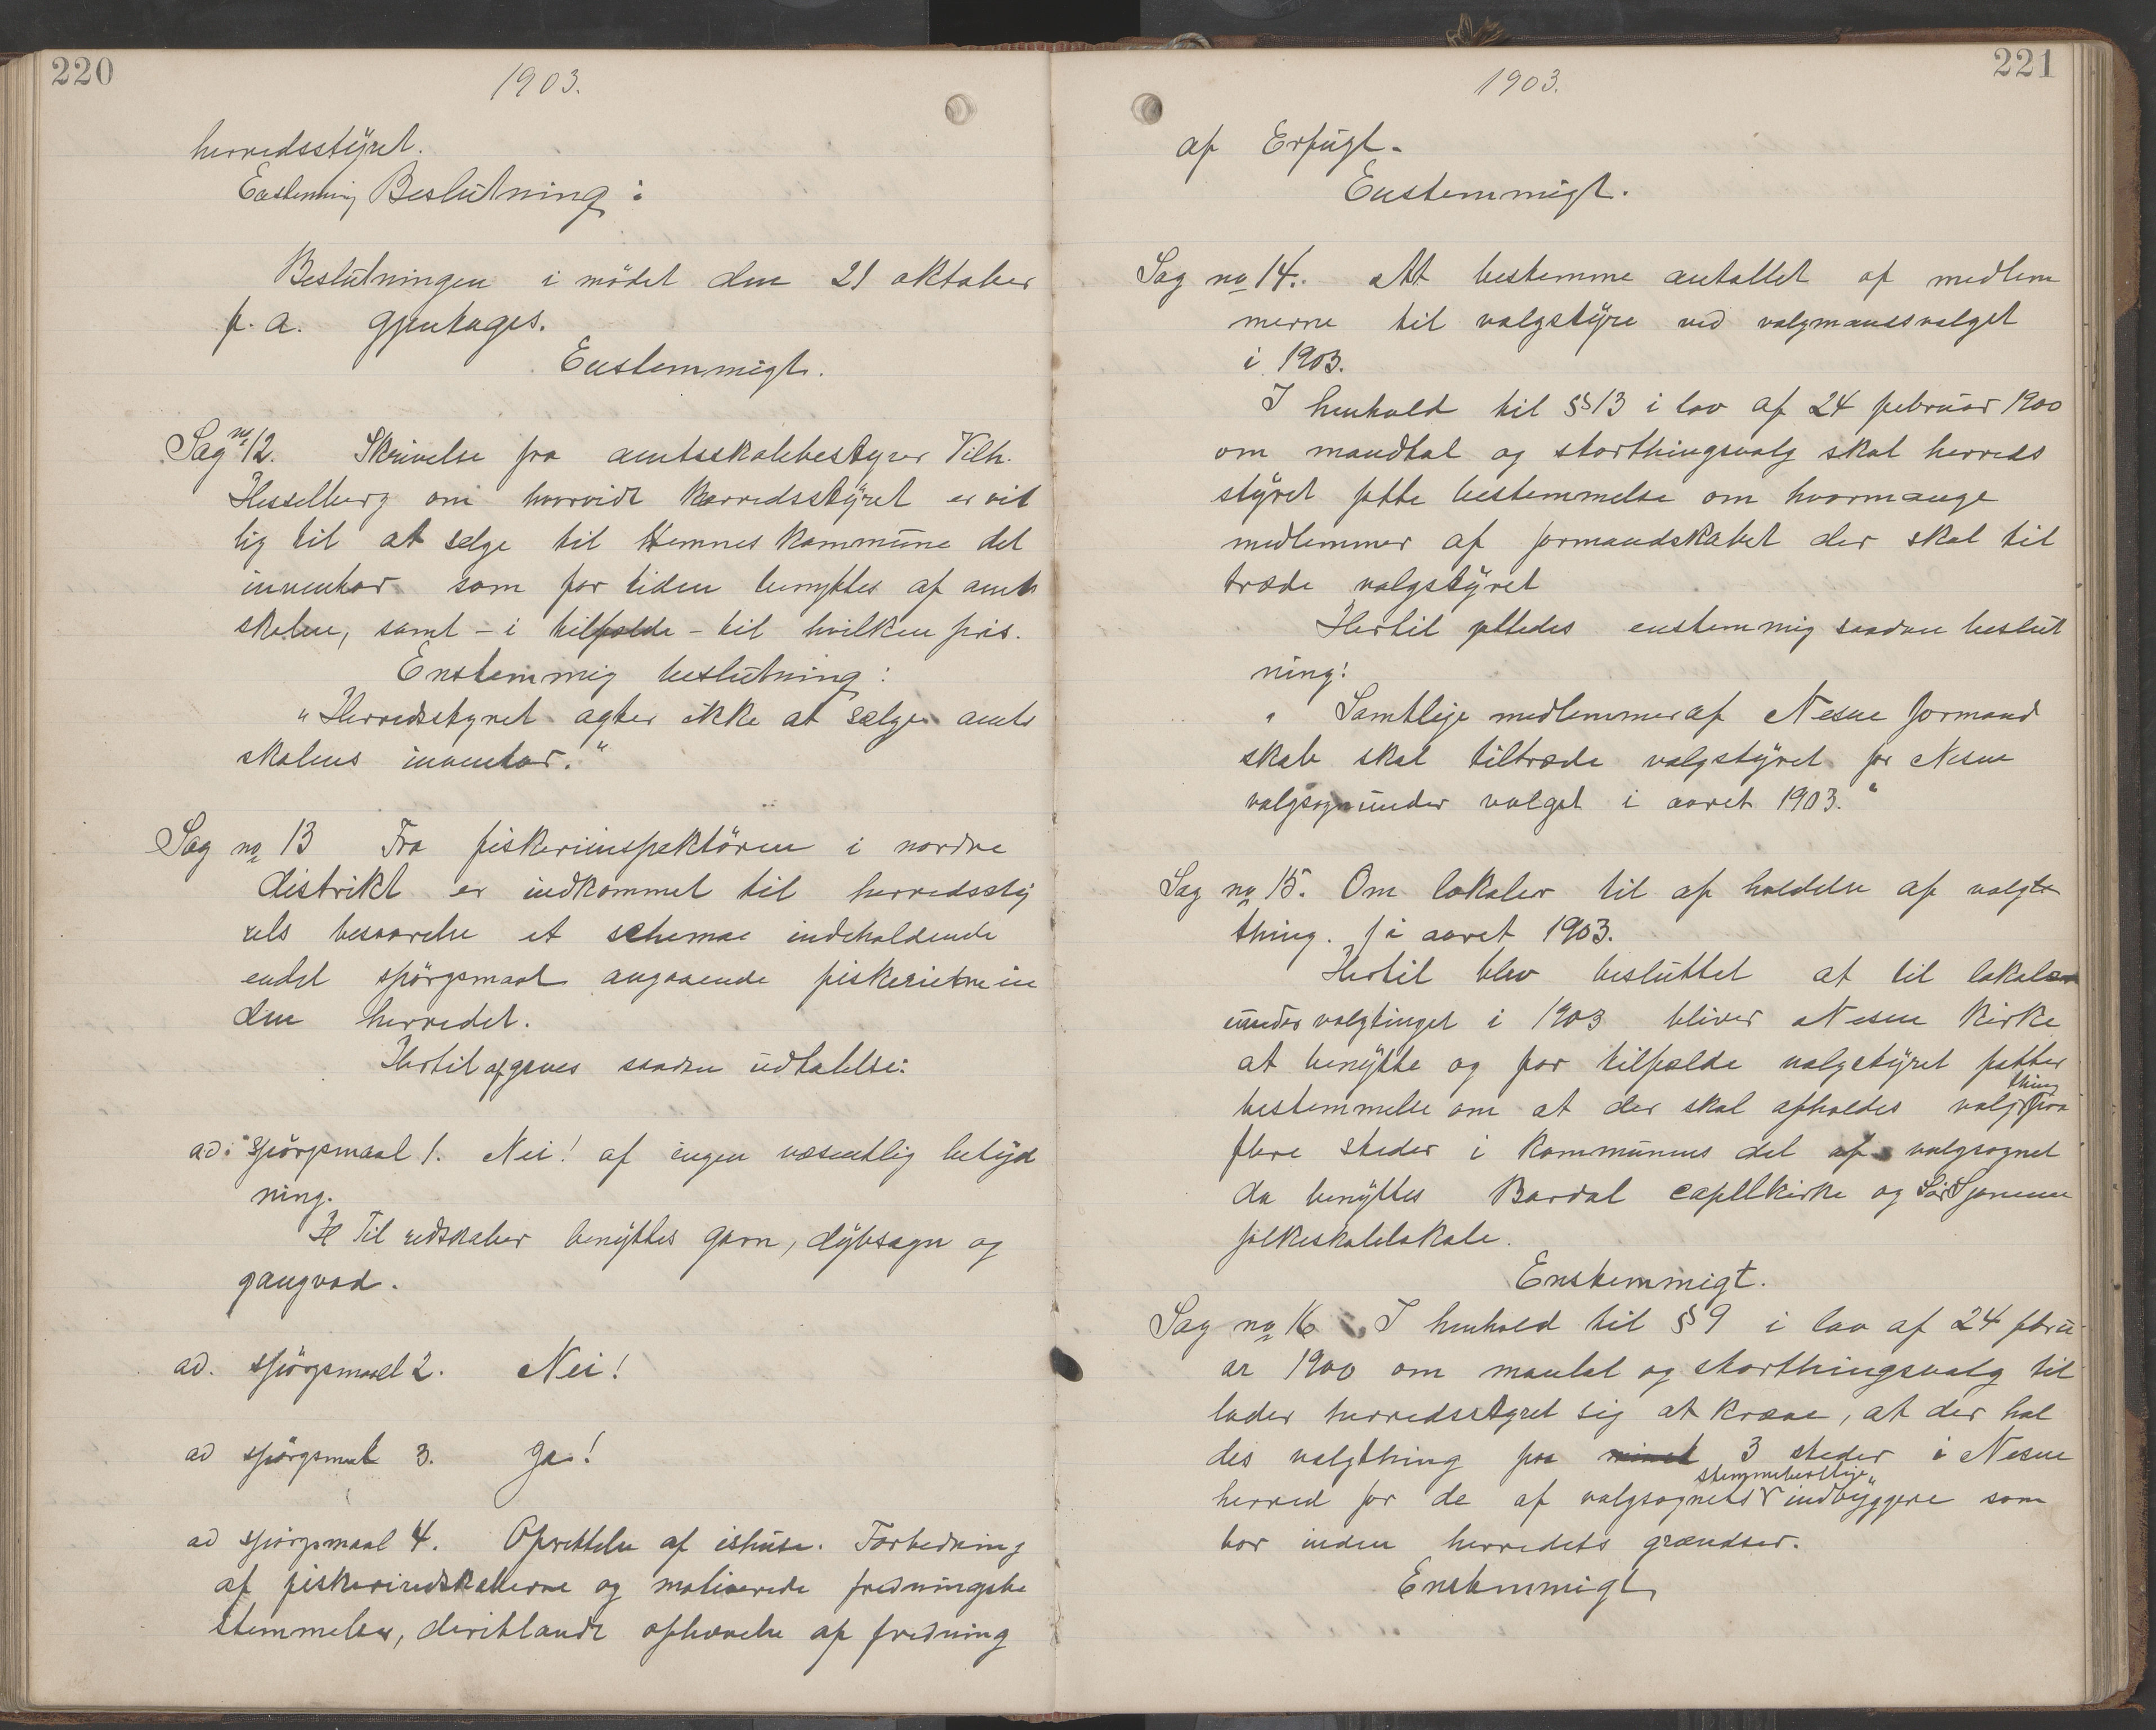 220
1903.
herredsstÿret.
Enstemmig Beslutning:
Beslutningen i mödet den 21 oktober
f. a. gjentages.
Enstemmigt.
Sag no 12. Skrivelse fra amtsskolebestyrer Vilh.
Hesselberg om hvorvidt herredsstÿret er vil
lig til at selge til Hemnes kommune det
inventar som for tiden benyttes af amts
skolen, samt - i tilfælde - til hvilken pris.
Enstemmig beslutning:
"Herredsstyret agter ikke at sælge amts
skolens inventar."
Sag no 13 Fra fiskeriinspektören i nordre
distrikt er indkommet til herredssty
rets besvarelse et schemae indeholdende
endel spörgsmaal angaaende fiskerierne in
den herredet.
Hertil afgaves saadan udtalelse:
ad. spörgsmaal 1. Nei! af ingen væsentlig betÿd
ning.
Til redskaber benÿttes garn, dÿbsagn og
gangvad.
ad. spörgsmaal 2. Nei!
ad spörgsmal 3. Ja!
ad spörgsmaal 4. Oprettelse af ishuse. Forbedring
af fiskeriredskaberne og motiverede fredningsbe
stemmelser, deriblandt ophævelse af fredning
221
1903.
af Erfugl.
Enstemmigt.
Sag no 14. At bestemme antallet af medlem
merne til valgstÿre ved valgmandsvalget
i 1903.
I henhold til §§ 13 i lov af 24 februar 1900
om mandtal og storthingsvalg skal herreds
stÿret fatte bestemmelse om hvormange
medlemmer af formandskabet der skal til
træde valgstÿret
Hertil fattedes enstemmig saadan beslut
ning:
" Samtlige medlemmer af Nesne formand
skab skal tiltræde valgstÿret for Nesne
valgsogn under valget i aaret 1903."
Sag no 15. Om lokaler til af holdelse af valg
thing. i aaret 1903.
Hertil blev besluttet at til lokale
under valgtinget i 1903 bliver Nesne kirke
at benÿtte og for tilfælde valgstÿret fatter
bestemmelse om at der skal afholdes valgthing paa
flere steder i kommunens del af valgsognet
da benÿttes Bardal capellkirke og Sör Sjonens
folkeskolelokale.
Enstemmigt.
Sag no 16 I henhold til § 9 i lov af 24 febru
ar 1900 om mantal og storthingsvalg til
lader herredsstyret sig at kræve, at der hol
des valgthing paa minst 3 steder i Nesne
herred for de af valgsognets stemmeberettige indbÿggere som
bor inden herredets grændser.
Enstemmigt